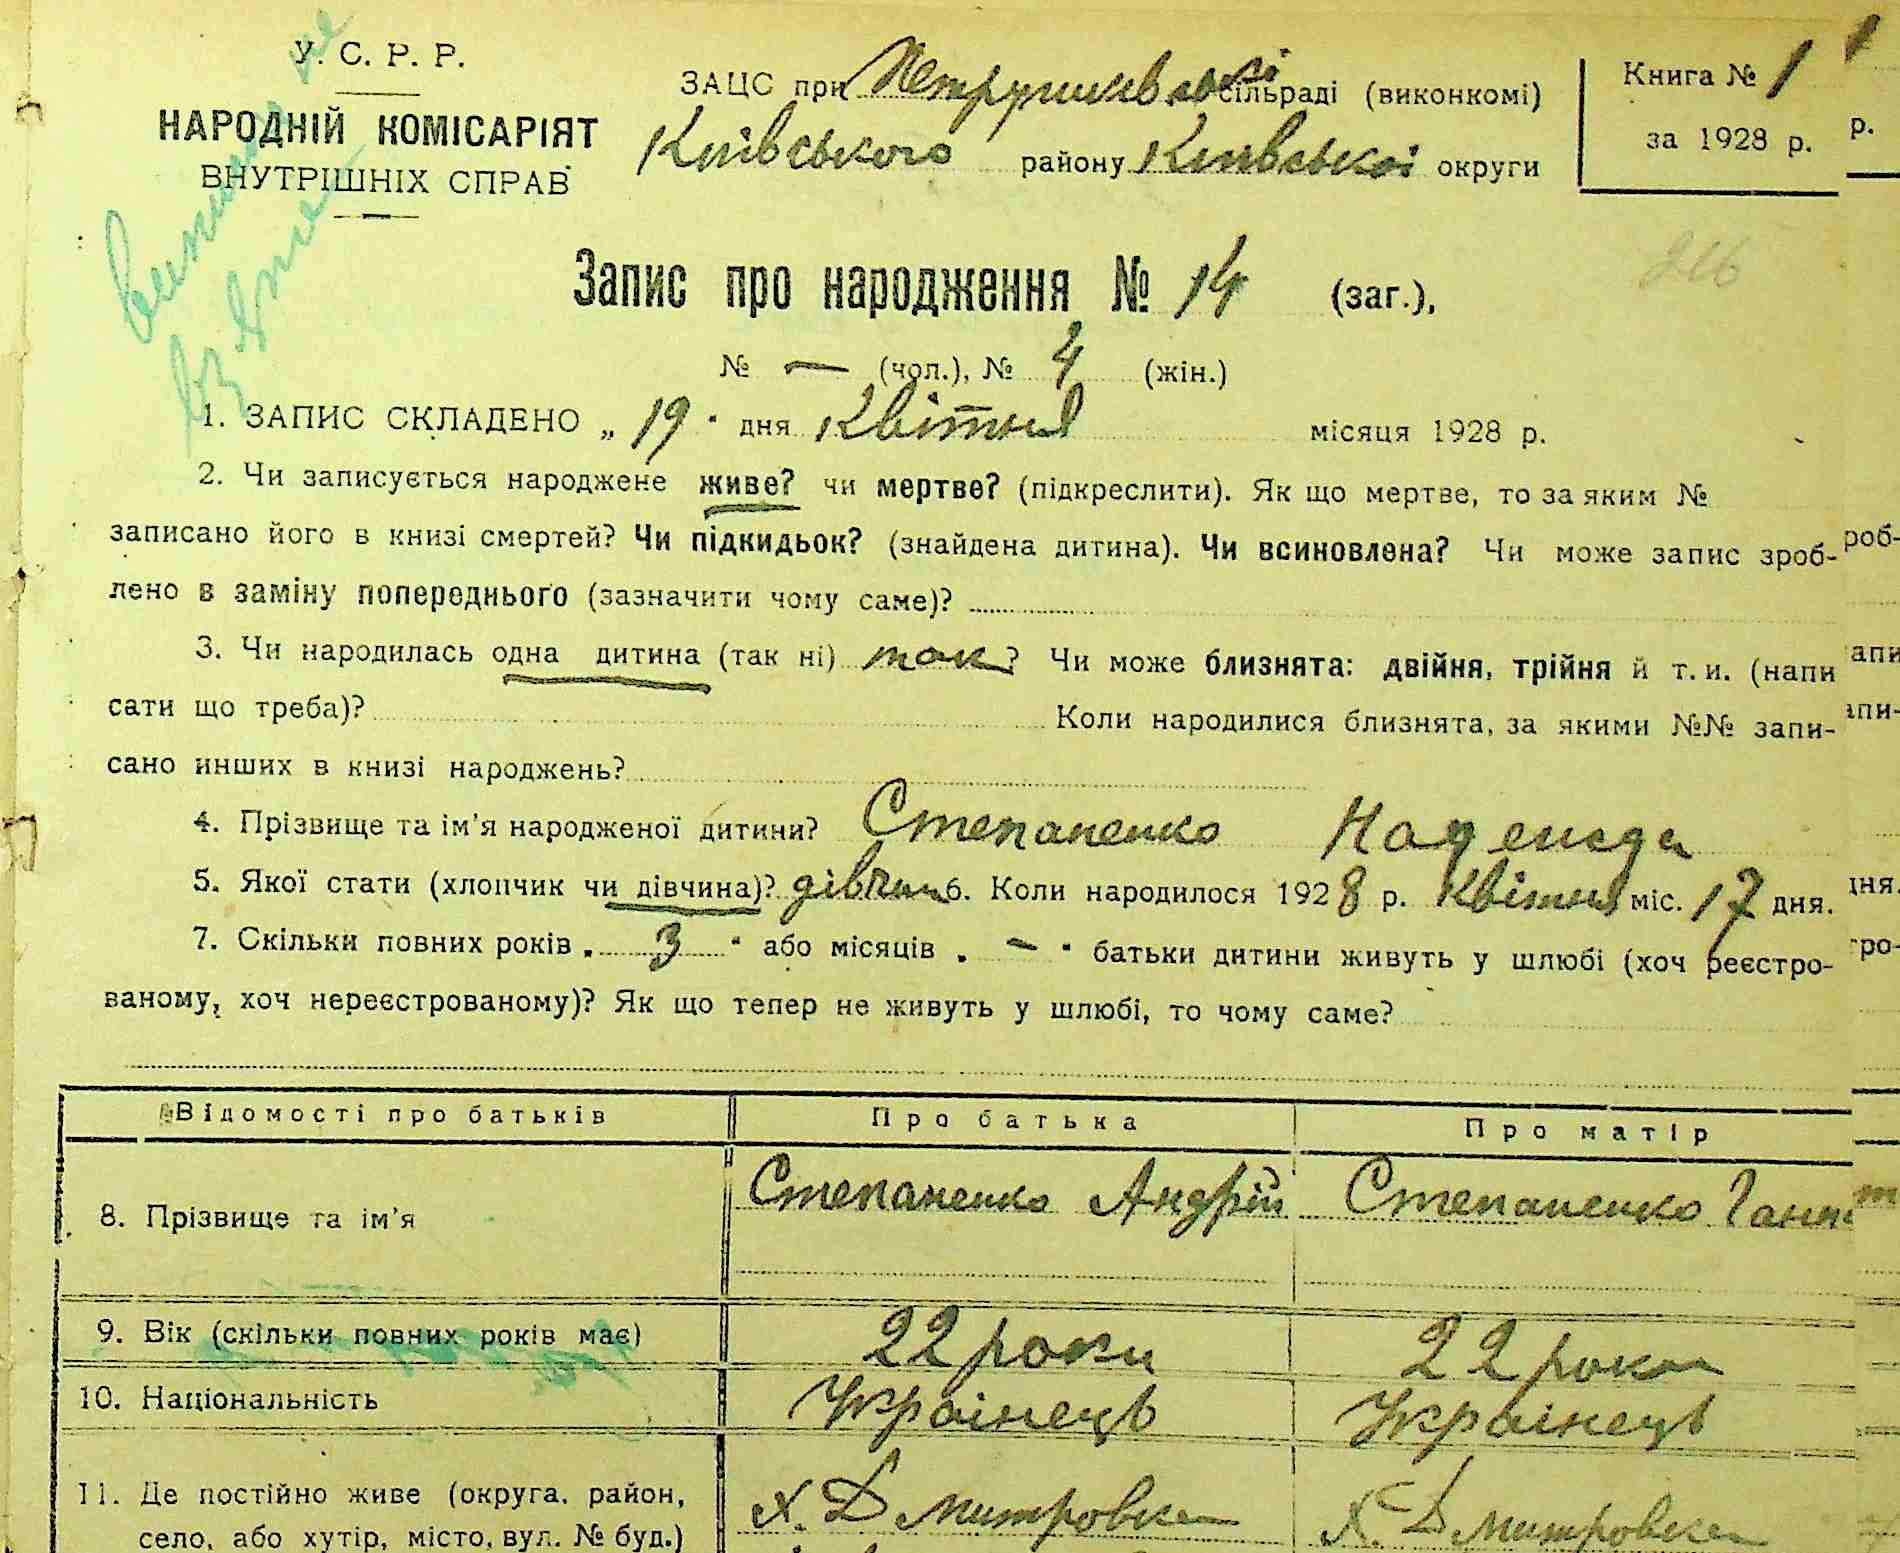 У. С. Р. Р.
НАРОДНІЙ КОМІСАРІЯТ
ВНУТРІШНІХ СПРАВ
ЗАЦС при Петрушківській сільраді (виконкомі)
Київського району Київської округи
Книга № 1
за 1928 р.
р.
216
Запис про народження № 14 (заг.),
№ — (чол.), № 4 (жін.)
1. ЗАПИС СКЛАДЕНО „ 19 " дня Квітня місяця 1928 р.
2. Чи записується народжене живе? чи мертве? (підкреслити). Як що мертве, то за яким №
записано його в книзі смертей? Чи підкидьок? (знайдена дитина). Чи всиновлена? Чи може запис зроб-
роб-
лено в заміну попереднього (зазначити чому саме)?
3. Чи народилась одна дитина (так ні) так? Чи може близнята: двійня, трійня й т. и. (напи
апи
сати що треба)? Коли народилися близнята, за якими №№ запи-
пи-
сано инших в книзі народжень?
4. Прізвище та ім'я народженої дитини? Степаненко Надежда
5. Якої стати (хлопчик чи дівчина)? дівчина 6. Коли народилося 1928 р. Квітня міс. 17 дня.
дня.
7. Скільки повних років „ 3 " або місяців „ — " батьки дитини живуть у шлюбі (хоч реєстро-
ро-
ваному, хоч нереєстрованому)? Як що тепер не живуть у шлюбі, то чому саме?
Відомості про батьків Про батька Про матір
8. Прізвище та ім'я Степаненко Андрій Степаненко Ганна
9. Вік (скільки повних років має) 22 роки 22 роки
10. Національність Українець Українець
11. Де постійно живе (округа, район,
село, або хутір, місто, вул. № буд.)
х. Дмитровка х. Дмитровка